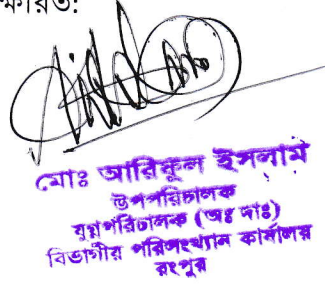 ক্ষরিত:
মোঃ আরিফুল ইসলাম
উপপরিচালক
যুগ্মপরিচালক (অঃ দাঃ)
বিভাগীয় পরিসংখ্যান কার্যালয়
রংপুর